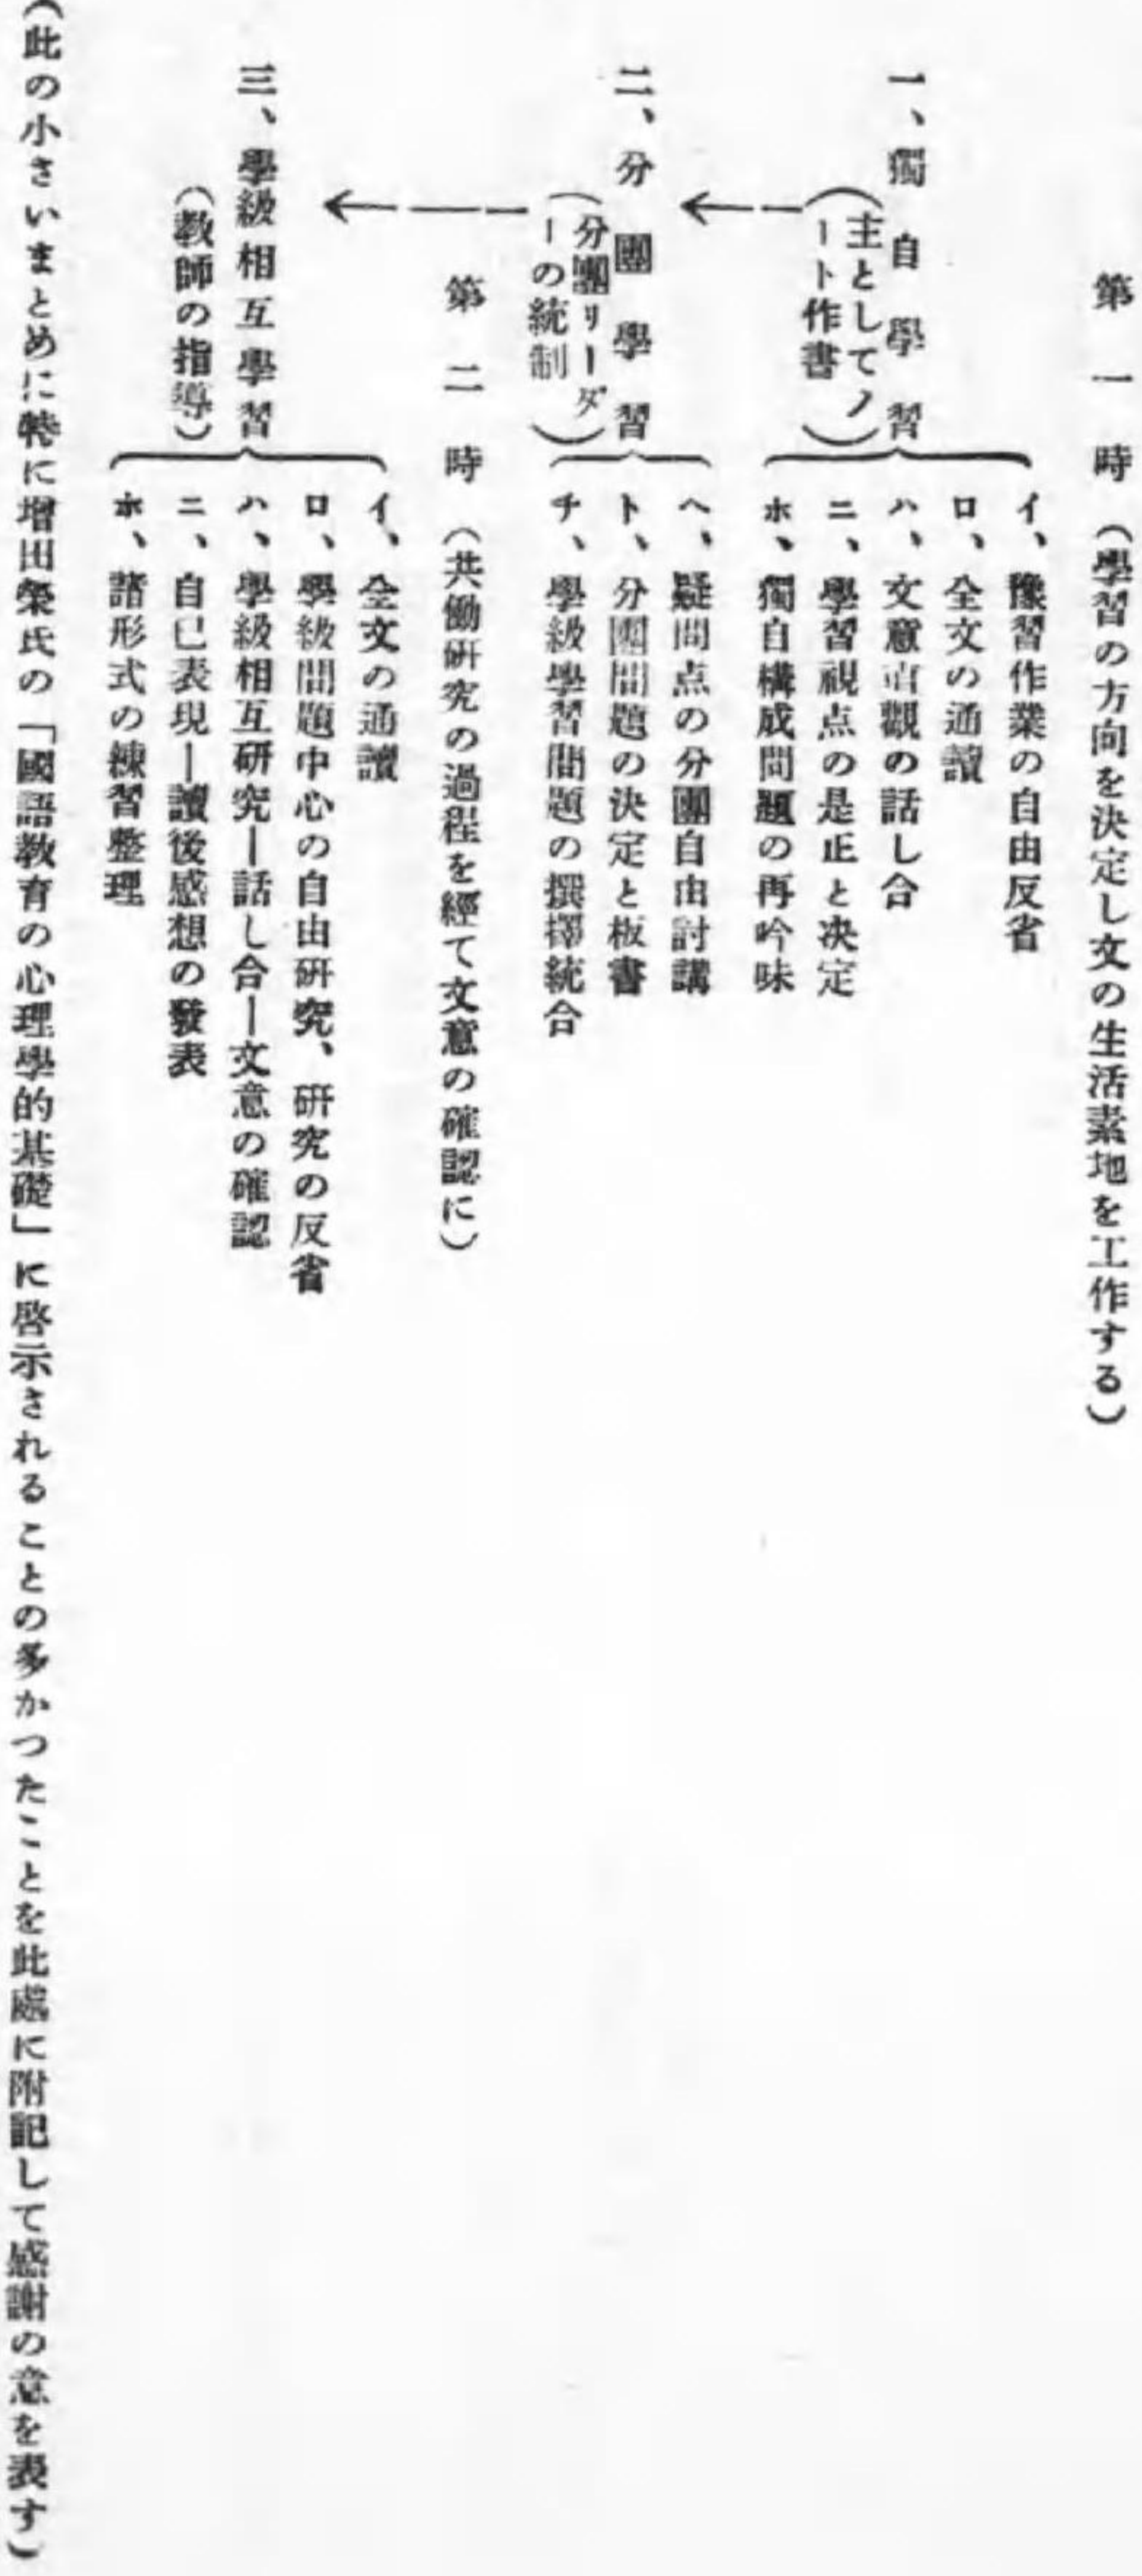 第一時（學習の方向を決定し文の生活素地を工作する）
一、獨自學習
（主としてノ
ート作書）
イ、豫習作業の自由反省
ロ、全文の通讀
ハ、文意直觀の話し合
ニ、學習視点の是正と決定
ホ、獨自構成問題の再吟味
二、分團學習
（分團リーダ
ーの統制）
ヘ、疑問点の分團自由討講
ト、分團問題の決定と板書
チ、學級學習問題の撰擇統合
第二時（共働硏究の過程を經て文意の確認に）
三、學級相互學習
（教師の指導）
イ、全文の通讀
ロ、學級問題中心の自由硏究、硏究の反省
ハ、學級相互硏究―話し合―文意の確認
ニ、自己表現―讀後感想の發表
ホ、諸形式の練習整理
（此の小さいまとめに特に增田榮氏の「國語教育の心理學的基礎」に啓示されることの多かつたことを此處に附記して感謝の意を表す）